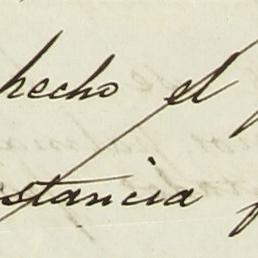 hecho el
stancia